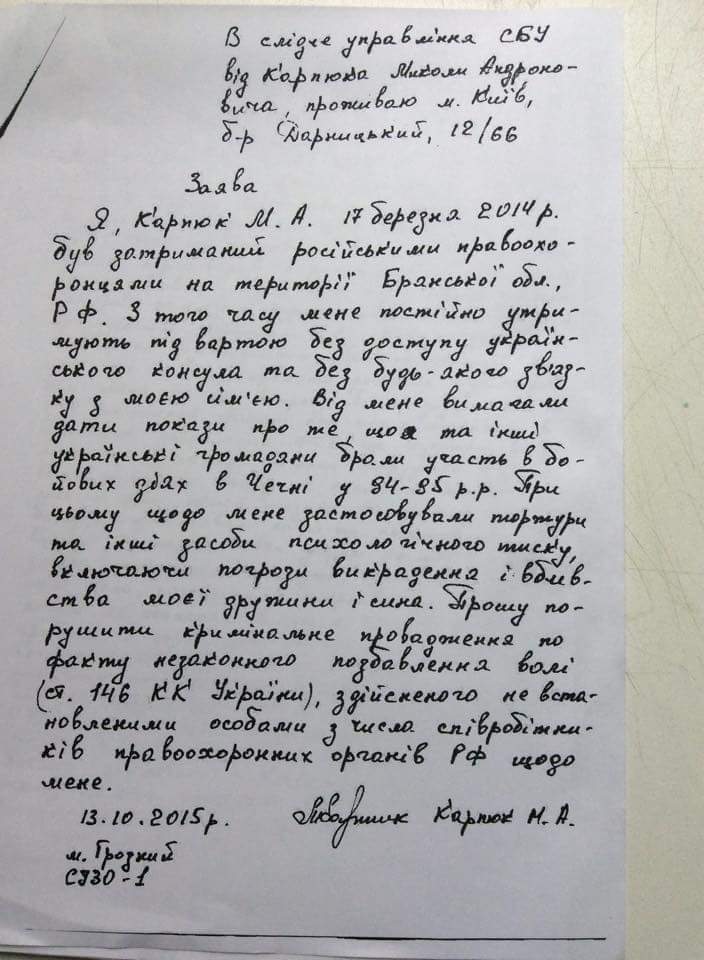 В слідче управління СБУ
від Карпюка Миколи Андроно-
вича, проживаю м. Київ,
б-р Дарницький, 12/66
Заява
Я, Карпюк М. А. 17 березня 2014 р.
був затриманий російськими правоохо-
ронцями на території Брянської обл.,
РФ. З того часу мене постійно утри-
мують під вартою без доступу україн-
ського консула та без будь-якого зв'яз-
ку з моєю сім'єю. Від мене вимагали
дати покази про те, що я та інші
українські громадяни брали участь в бо-
йових діях в Чечні у 94-95 р.р. При
цьому щодо мене застосовували тортури
та інші засоби психологічного тиску,
включаючи погрози викрадення і вбив-
ства моєї дружини і сина. Прошу по-
рушити кримінальне провадження по
факту незаконного позбавлення волі
(ст. 146 КК України), здійсненого не вста-
новленими особами з числа співробітни-
ків правоохоронних органів РФ щодо
мене.
13.10.2015 р. Карпюк М. А.
м. Грозний
СІЗО-1